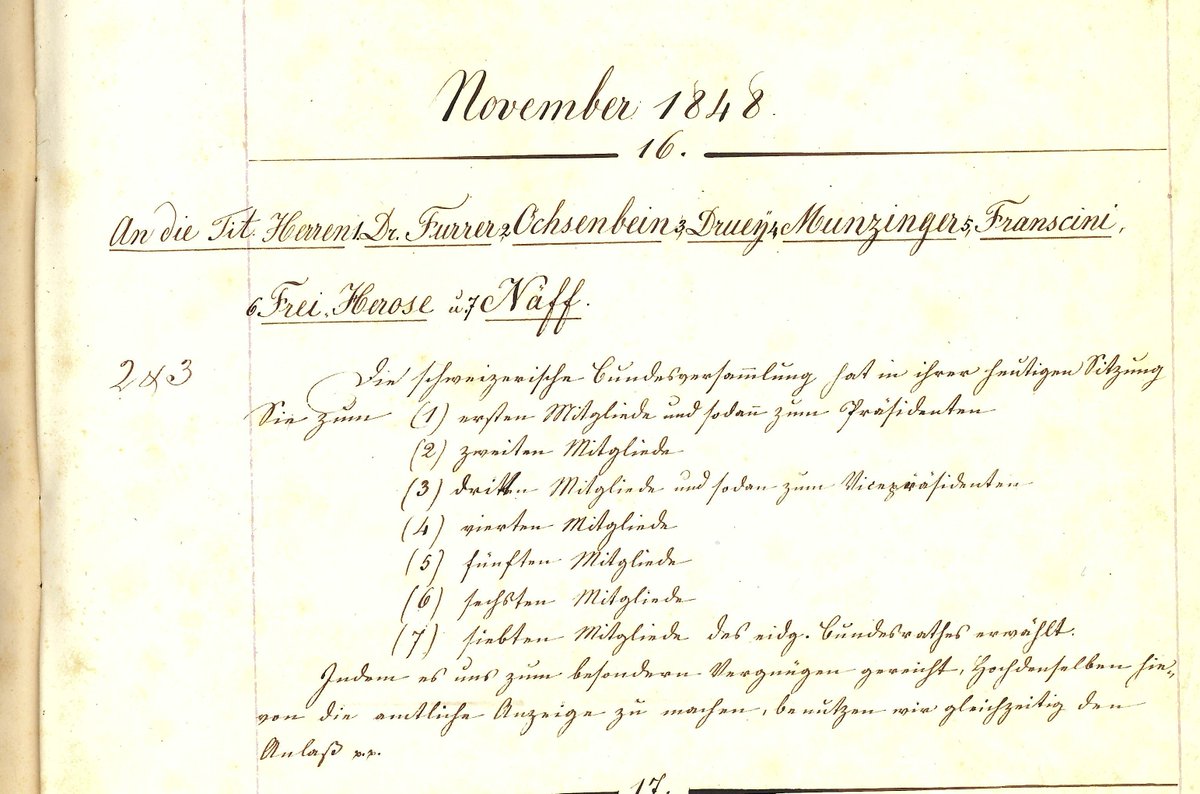 November 1848.
16.
An die Tit. Herren 1, Dr. Furrer 2, Ochsenbein 3, Druey 4, Munzinger 5, Franscini,
6 Frei-Herose u. 7 Näff.
2 & 3 Die schweizerische Bundesversam̅lung hat in ihrer heutigen Sitzung
Sie zum (1) ersten Mitgliede und sodan̅ zum Präsidenten
(2) zweiten Mitgliede
(3) dritten Mitgliede und sodan zum Vicepräsidenten
(4) vierten Mitgliede
(5) fünften Mitgliede
(6) sechsten Mitgliede
(7) siebten Mitgliede des eidg. Bundesrathes erwählt.
Indem es uns zum besondern Vergnügen gereicht, Hochdenselben hie„
von die amtliche Anzeige zu machen, benutzen wir gleichzeitig den
Anlaß p.p.
17.